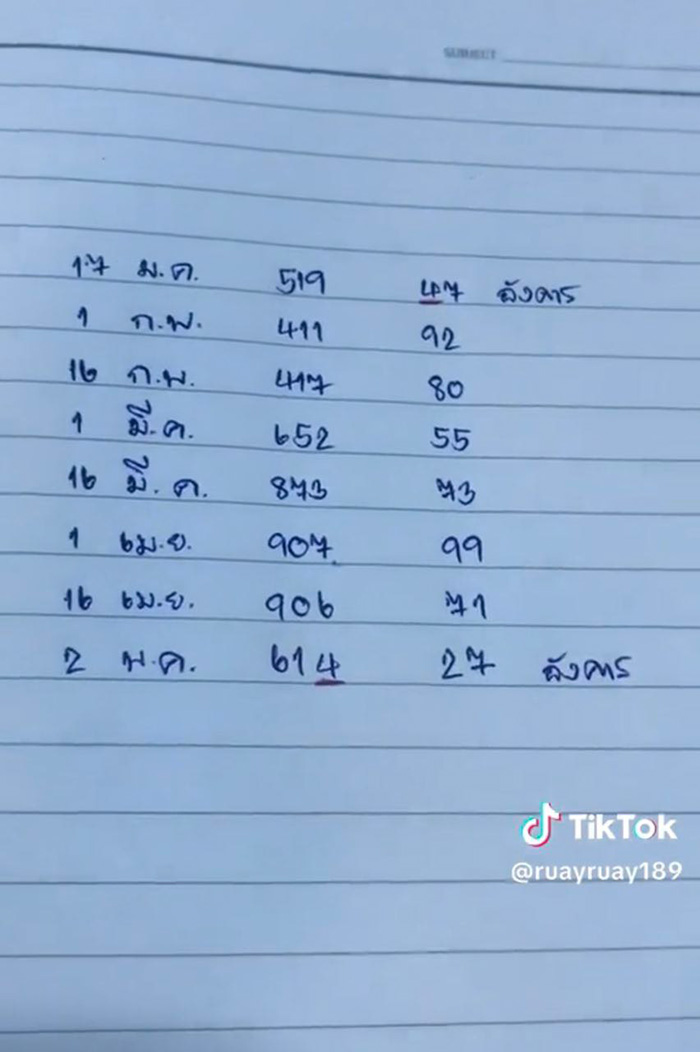 SUBJECT
17 ม.ค. 519 47 อังคาร
1 ก.พ. 411 92
16 ก.พ. 417 80
1 มี.ค. 652 55
16 มี.ค. 873 73
1 เม.ย. 907 99
16 เม.ย. 906 71
2 พ.ค. 614 27 อังคาร
TikTok
@ruayruay189